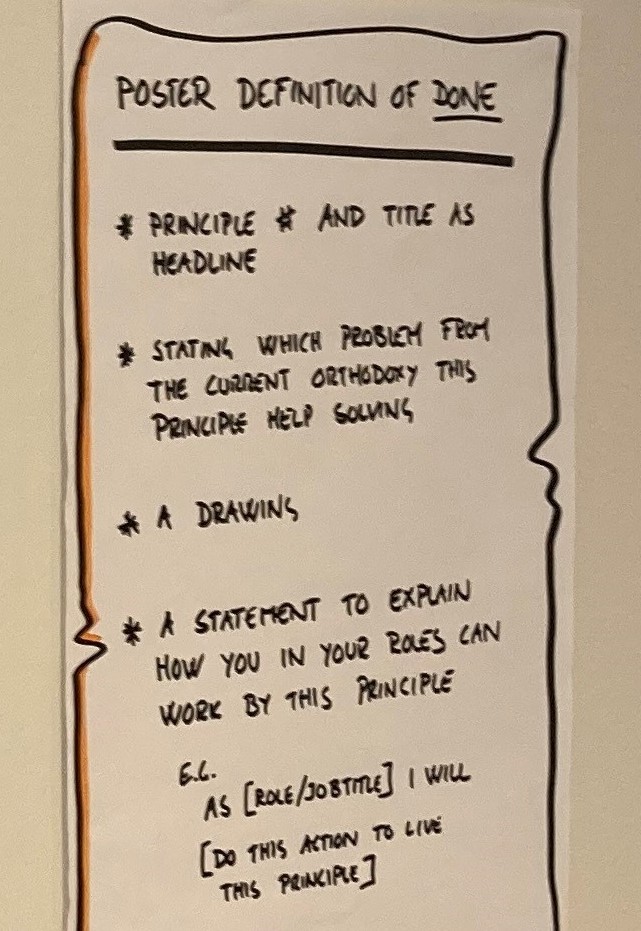 POSTER DEFINITION OF DONE
* PRINCIPLE # AND TITLE AS
HEADLINE
* STATING WHICH PROBLEM FROM
THE CURRENT ORTHODOXY THIS
PRINCIPLE HELP SOLVING
* A DRAWING
* A STATEMENT TO EXPLAIN
HOW YOU IN YOUR ROLES CAN
WORK BY THIS PRINCIPLE
E.G.
AS [ROLE/JOBTITLE] I WILL
[DO THIS ACTION TO LIVE
THIS PRINCIPLE]